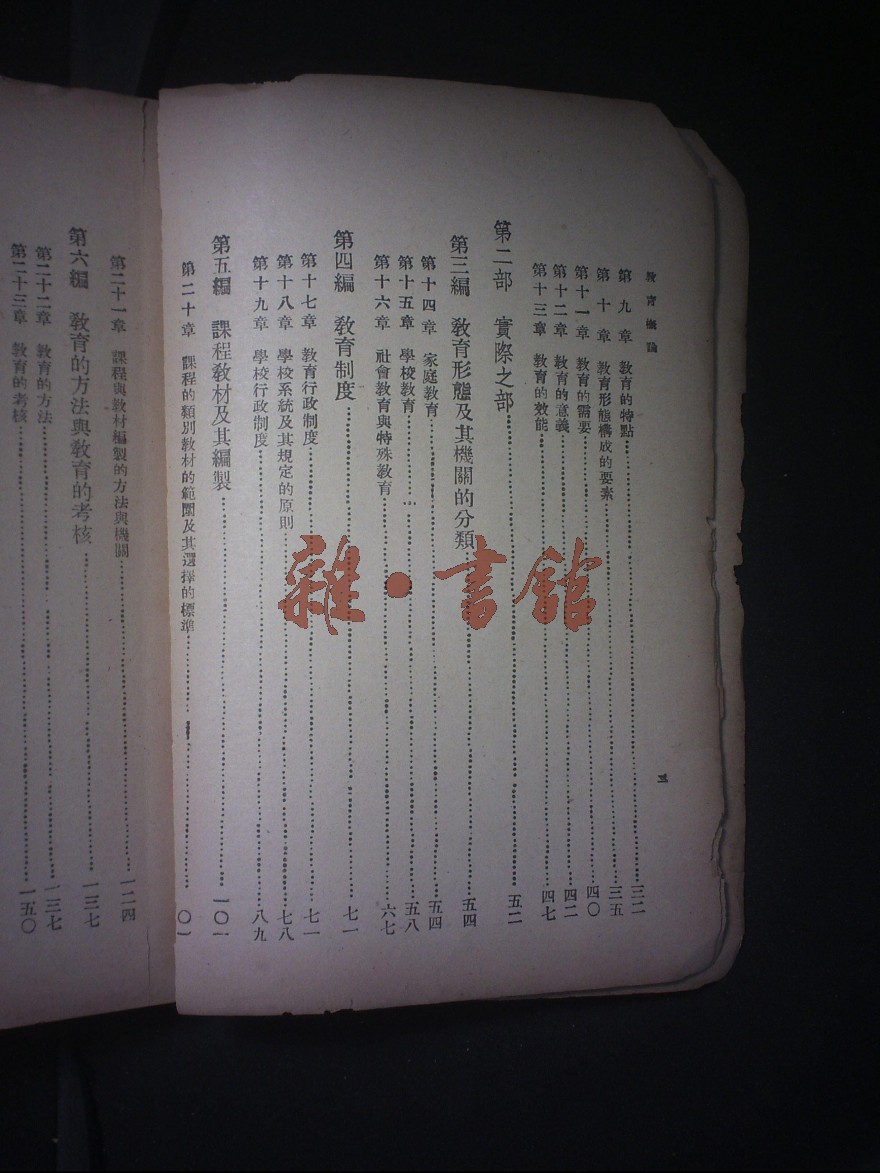 教育概論
第九章 教育的特點 三二
第十章 教育形態構成的要素 三五
第十一章 教育的需要 四〇
第十二章 教育的意義 四二
第十三章 教育的效能 四七
第二部 實際之部 五二
第三編 教育形態及其機關的分類 五四
第十四章 家庭教育 五四
第十五章 學校教育 五八
第十六章 社會教育與特殊教育 六七
第四編 教育制度 七一
第十七章 教育行政制度 七一
第十八章 學校系統及其規定的原則 七八
第十九章 學校行政制度 八九
第五編 課程教材及其編製 一〇一
第二十章 課程的類別教材的範圍及其選擇的標準 〇一
第二十一章 課程與教材編製的方法與機關 一二四
第六編 教育的方法與教育的考核 一三七
第二十二章 教育的方法 一三七
第二十三章 教育的考核 一五〇
雜·書館